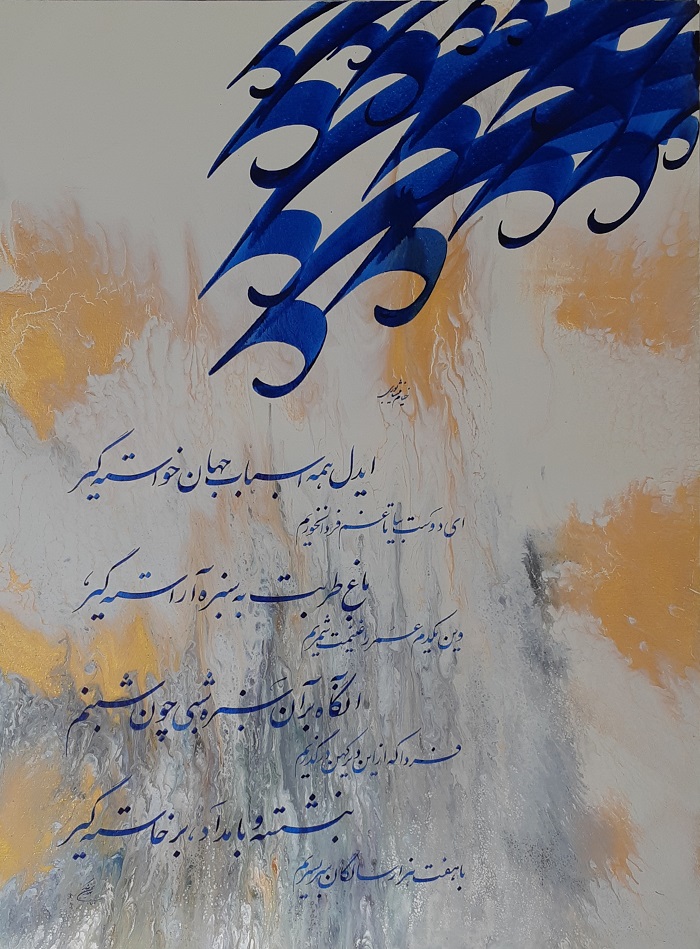 خیام نیشابوری
ایدل همه اسباب جهان خواسته گیر
ای دوست بیا تا غم فردا نخوریم
باغ طربت به سبزه آراسته گیر
وین یکدم عمر را غنیمت شمریم
آنگاه بر آن سبزه شبی چون شبنم
فردا که ازین دیر کهن درگذریم
بنشسته و بامداد برخاسته گیر
با هفت هزار سالگان سر بسریم